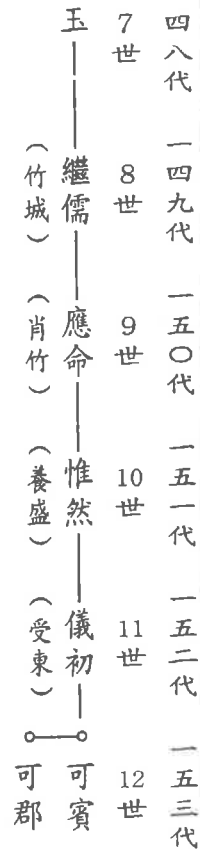 四八代 一四九代 一五〇代 一五一代 一五二代 一五三代
7世 8世 9世 10世 11世 12世
玉 繼儒 應命 惟然 儀初 可賓
(竹城) (肖竹) (養盛) (受東) 可郡